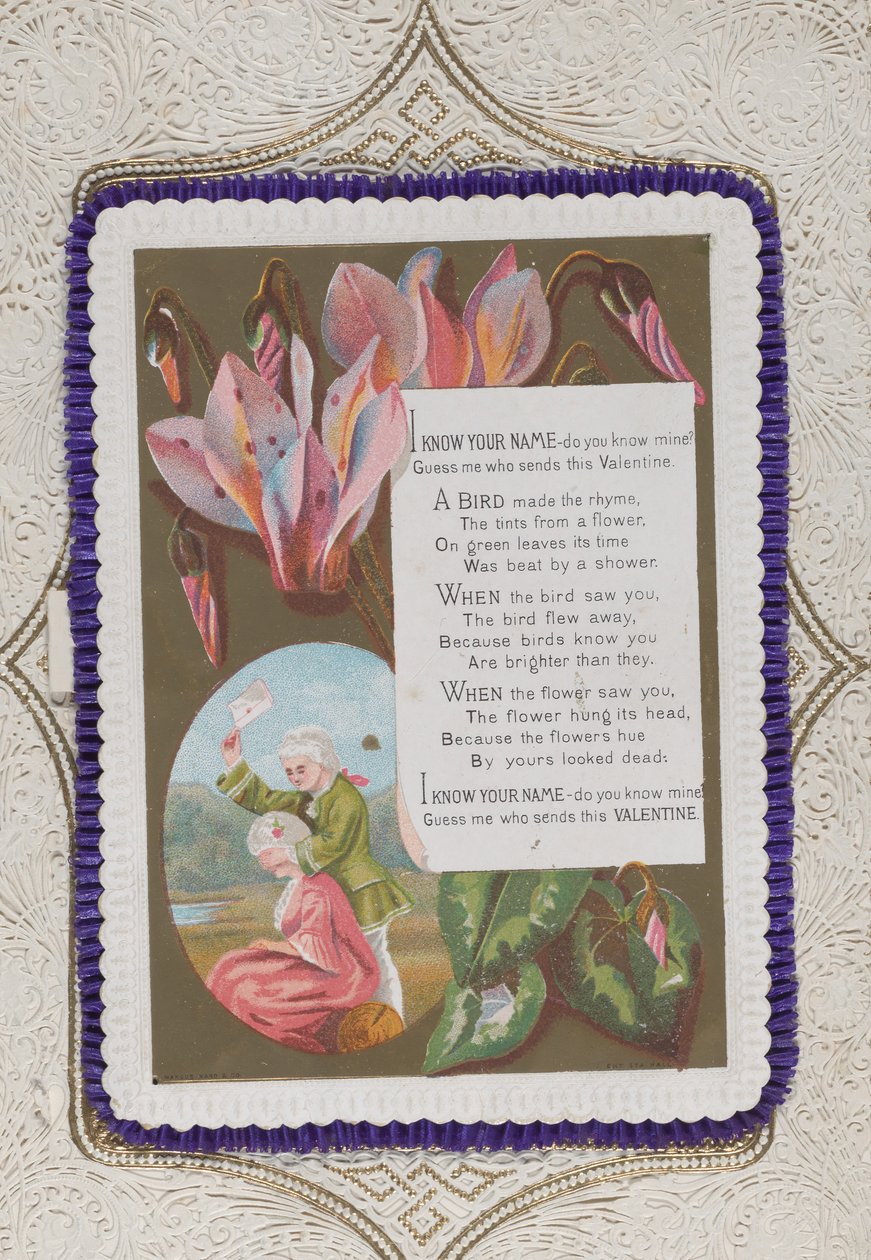 I KNOW YOUR NAME-do you know mine?
Guess me who sends this Valentine.
A BIRD made the rhyme,
The tints from a flower,
On green leaves its time
Was beat by a shower.
WHEN the bird saw you,
The bird flew away,
Because birds know you
Are brighter than they.
WHEN the flower saw you,
The flower hung its head,
Because the flowers hue
By yours looked dead:
I KNOW YOUR NAME-do you know mine?
Guess me who sends this VALENTINE.
MARCUS WARD & CO.
ENT. STA. HALL